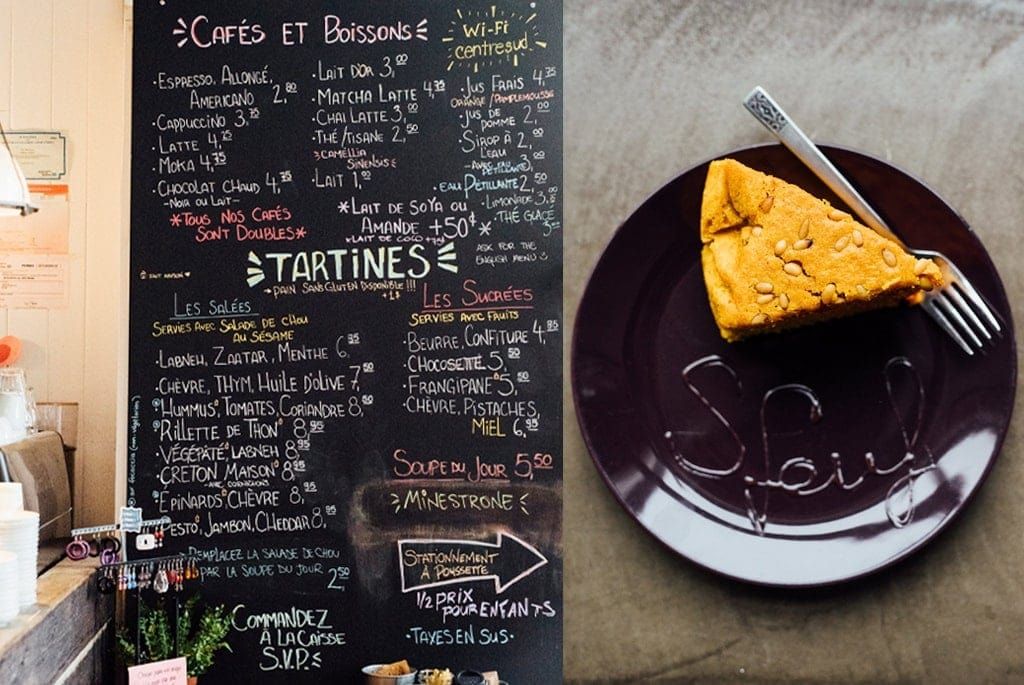 Cafés et Boissons
Wi-Fi
centresud
·Espresso, Allongé,
Americano 2,80
·Cappuccino 3,75
·Latte 4,25
·Moka 4,75
·Chocolat chaud 4,75
-Noir ou Lait-
*Tous nos cafés
sont doubles*
·Lait d'or 3,00
·Matcha Latte 4,75
·Chai Latte 3,00
·Thé/Tisane 2,50
Caméllia
Sinensis
·Lait 1,00
*Lait de soya ou
Amande +50¢*
·Jus Frais 4,75
Orange/Pamplemousse
·Jus de
Pomme 2,00
·Sirop à 2,00
l'eau
·eau pétillante 2,50
·Limonade 3,00
·Thé glacé
Ask for the
English menu
Tartines
→ Pain sans gluten disponible !!!
+1$
Les Salées
Servies avec salade de chou
au sésame
·Labneh, Zaatar, Menthe 6,95
·Chèvre, Thym, Huile d'olive 7,50
·Hummus, Tomates, Coriandre 8,50
·Rillette de Thon 8,95
·Végépâté, Labneh 8,95
·Creton Maison 8,95
·Épinards, Chèvre 8,95
Pesto, Jambon, Cheddar 8,95
→ Remplacez la salade de chou
par la soupe du jour
2,50
Commandez
à la caisse
S.V.P.
Les Sucrées
Servies avec fruits
·Beurre, Confiture 4,95
·Chocosette 5,50
·Frangipane 5,50
·Chèvre, Pistaches,
Miel 6,95
Soupe du Jour 5,50
Minestrone
Stationnement
à Poussette
1/2 prix
pour enfants
·Taxes en sus·